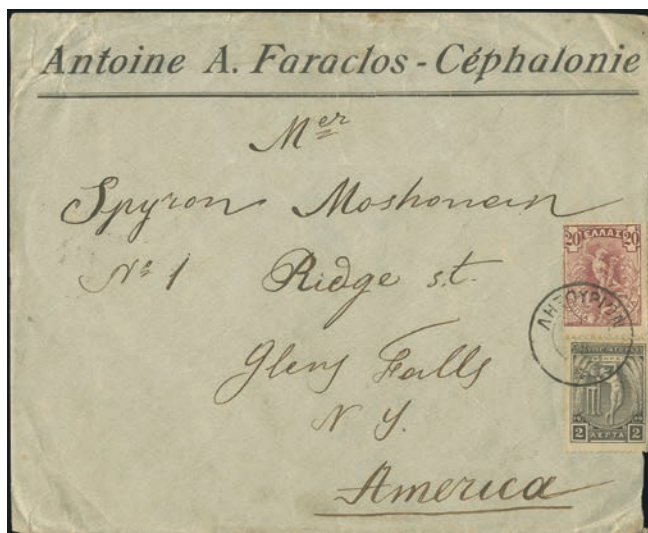 Antoine A. Faraclos - Céphalonie
Mer
Spyron Moshonean
No 1 Ridge st.
Glens Falls
N Y.
America
20 ΕΛΛΑΣ 20
ΛΗΞΟΥΡΙΟΝ
2 ΛΕΠΤΑ 2